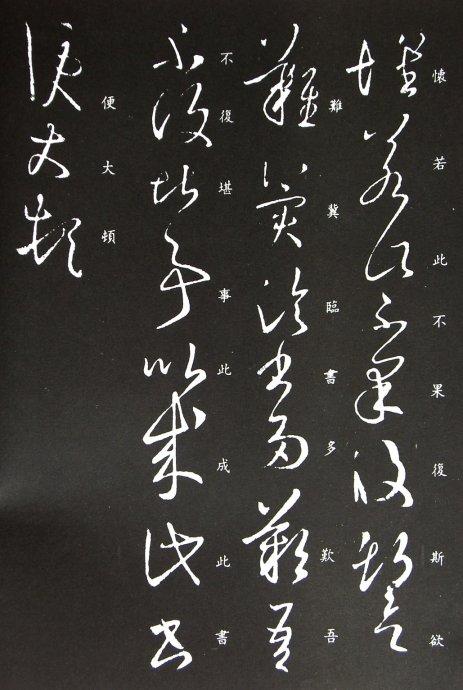 懷若此不果復斯欲
難冀臨書多歎吾
不復堪事此成此書
便大頓